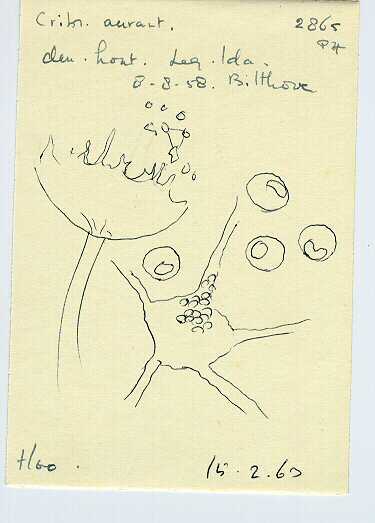 Cribr. aurant. 2865
den. hout. Leg. Ida.
8-8-58. Bilthove
t/oo. 15.2.60